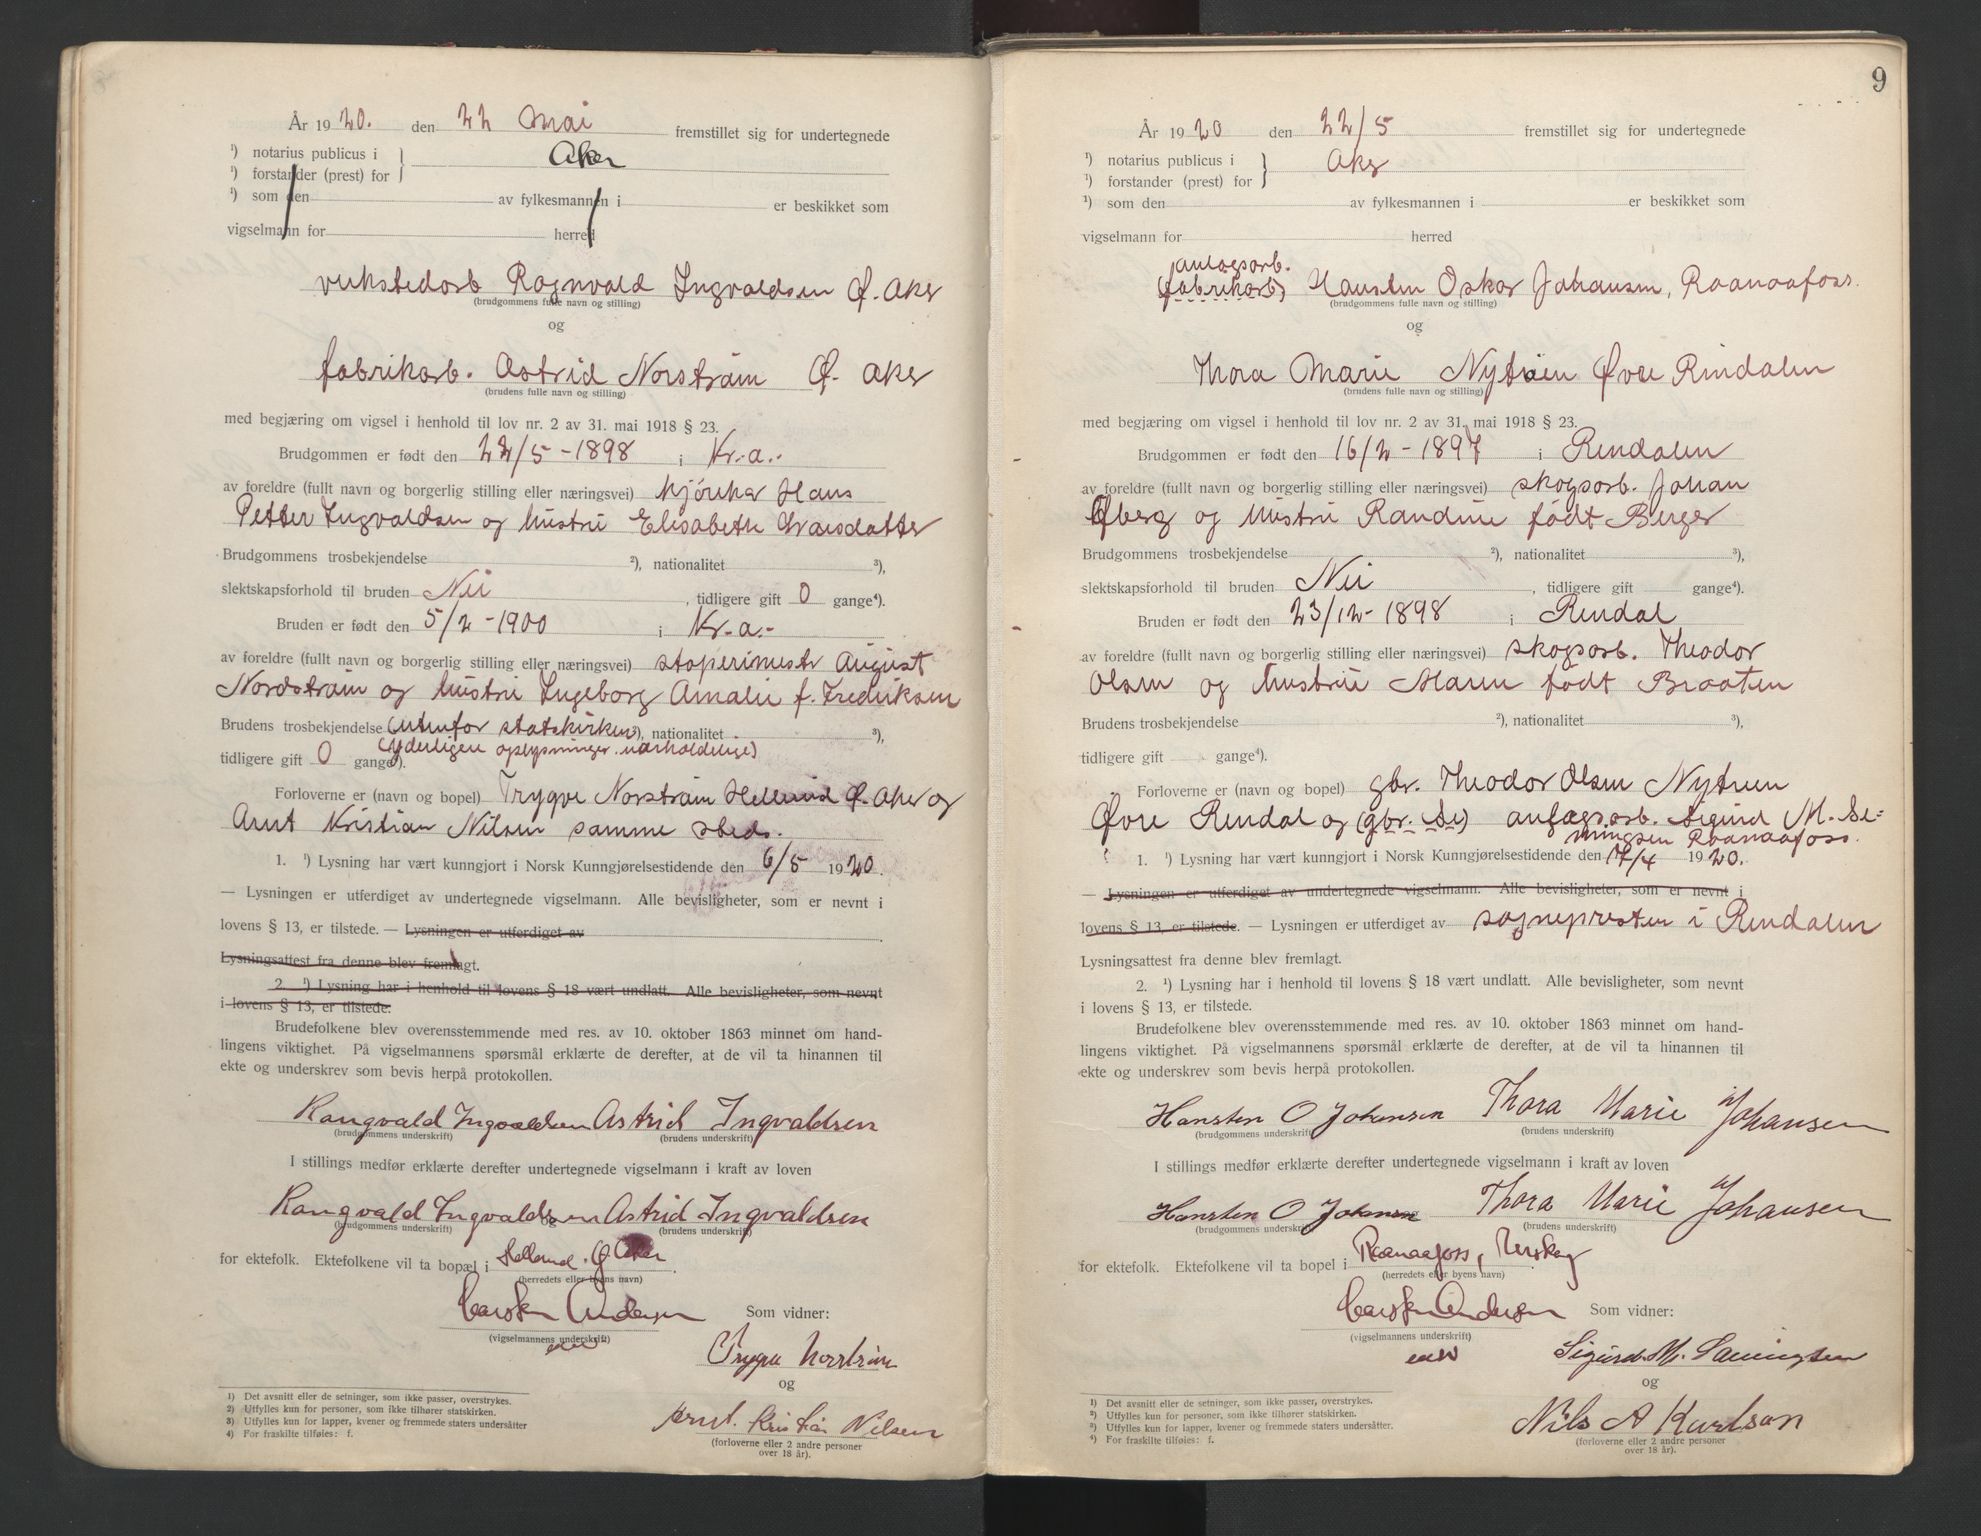 År 1920. den 22 Mai fremstillet sig for undertegnede
¹) notarius publicus i } Aker
¹) forstander (prest) for
¹) som den av fylkesmannen i er beskikket som
vigselmann for herred
verkstedarb Ragnvald Ingvaldsen Ø. Aker
(brudgommens fulle navn og stilling)
og
fabrikarb. Astrid Norstrøm Ø. Aker
(brudens fulle navn og stilling)
med begjæring om vigsel i henhold til lov nr. 2 av 31. mai 1918 § 23.
Brudgommen er født den 22/5-1898 i Kr.a.-
av foreldre (fullt navn og borgerlig stilling eller næringsvei) kjører Hans
Petter Ingvaldsen og hustru Elisabeth Larsdatter
Brudgommens trosbekjendelse ²), nationalitet ³),
slektskapsforhold til bruden Nei, tidligere gift 0 gange⁴).
Bruden er født den 5/2-1900 i Kr.a.-
av foreldre (fullt navn og borgerlig stilling eller næringsvei) støperimestr August
Nordstrøm og hustru Ingeborg Amalie f. Fredriksen
Brudens trosbekjendelse (utenfor statskirken ²), nationalitet ³),
(yderligere oplysninger uerholdelige)
tidligere gift 0 gange⁴).
Forloverne er (navn og bopel) Trygve Norstrøm Hellerud Ø. Aker og
Arnt Kristian Nilsen samme steds.
1. ¹) Lysning har vært kunngjort i Norsk Kunngjørelsestidende den 6/5 1920.
— Lysningen er utferdiget av undertegnede vigselmann. Alle bevisligheter, som er nevnt i
lovens § 13, er tilstede. — Lysningen er utferdiget av
Lysningsattest fra denne blev fremlagt.
2. ¹) Lysning har i henhold til lovens § 18 vært undlatt. Alle bevisligheter, som nevnt
i lovens § 13, er tilstede.
Brudefolkene blev overensstemmende med res. av 10. oktober 1863 minnet om hand-
lingens viktighet. På vigselmannens spørsmål erklærte de derefter, at de vil ta hinannen til
ekte og underskrev som bevis herpå protokollen.
Rangvald Ingvaldsen Astrid Ingvaldsen
(brudgommens underskrift) (brudens underskrift)
I stillings medfør erklærte derefter undertegnede vigselmann i kraft av loven
Rangvald Ingvaldsen Astrid Ingvaldsen
(brudgommens underskrift) (brudens underskrift)
for ektefolk. Ektefolkene vil ta bopæl i Ø Aker
(herredets eller byens navn)
Carsten Andersen Som vidner:
(vigselmannens underskrift)
Trygve Norstrøm
og
Arnt. Kristian Nilsen
(forloverne eller 2 andre personer
over 18 år).
1) Det avsnitt eller de setninger, som ikke passer, overstrykes.
2) Utfylles kun for personer, som ikke tilhører statskirken.
3) Utfylles kun for lapper, kvener og fremmede staters undersåtter
4) For fraskilte tilføies: f.
9
År 1920 den 22/5 fremstillet sig for undertegnede
¹) notarius publicus i } Aker
¹) forstander (prest) for
¹) som den av fylkesmannen i er beskikket som
vigselmann for herred
anlegsarb.
(fabrikarb) Hansten Oskar Johansen, Raanaafoss.
(brudgommens fulle navn og stilling)
og
Thora Marie Nytrøen Øvre Rindalen
(brudens fulle navn og stilling)
med begjæring om vigsel i henhold til lov nr. 2 av 31. mai 1918 § 23.
Brudgommen er født den 16/2-1897 i Rendalen
av foreldre (fullt navn og borgerlig stilling eller næringsvei) skogsarb. Johan
Øberg og hustru Randine født Berger
Brudgommens trosbekjendelse ²), nationalitet ³),
slektskapsforhold til bruden Nei, tidligere gift gange⁴).
Bruden er født den 23/12-1898 i Rendal
av foreldre (fullt navn og borgerlig stilling eller næringsvei) skogsarb. Theodor
Olsen og hustru Maren født Braaten
Brudens trosbekjendelse ²), nationalitet ³),
tidligere gift gange⁴).
Forloverne er (navn og bopel) gbr. Theodor Olsen Nytrøen
Øvre Rendal og (gbr. Se) anlægsarb. Sigurd M. Se-
mingsen Raanaafoss.
1. ¹) Lysning har vært kunngjort i Norsk Kunngjørelsestidende den 17/4 1920.
— Lysningen er utferdiget av undertegnede vigselmann. Alle bevisligheter, som er nevnt i
lovens § 13, er tilstede. — Lysningen er utferdiget av sognepresten i Rendalen
Lysningsattest fra denne blev fremlagt.
2. ¹) Lysning har i henhold til lovens § 18 vært undlatt. Alle bevisligheter, som nevnt
i lovens § 13, er tilstede.
Brudefolkene blev overensstemmende med res. av 10. oktober 1863 minnet om hand-
lingens viktighet. På vigselmannens spørsmål erklærte de derefter, at de vil ta hinannen til
ekte og underskrev som bevis herpå protokollen.
Hansten O Johansen Thora Marie Johansen
(brudgommens underskrift) (brudens underskrift)
I stillings medfør erklærte derefter undertegnede vigselmann i kraft av loven
Hansten O Johansen Thora Marie Johansen
(brudgommens underskrift) (brudens underskrift)
for ektefolk. Ektefolkene vil ta bopel i Raanaafoss, Urskog
(herredets eller byens navn)
Carsten Andersen Som vidner:
(vigselmannens underskrift)
Sigurd. M. Semingsen
og
Nils A Karlsen
(forloverne eller 2 andre personer
over 18 år).
¹) Det avsnitt eller de setninger, som ikke passer, overstrykes.
²) Utfylles kun for personer, som ikke tilhører statskirken.
³) Utfylles kun for lapper, kvener og fremmede staters undersåtter.
⁴) For fraskilte tilføies: f.